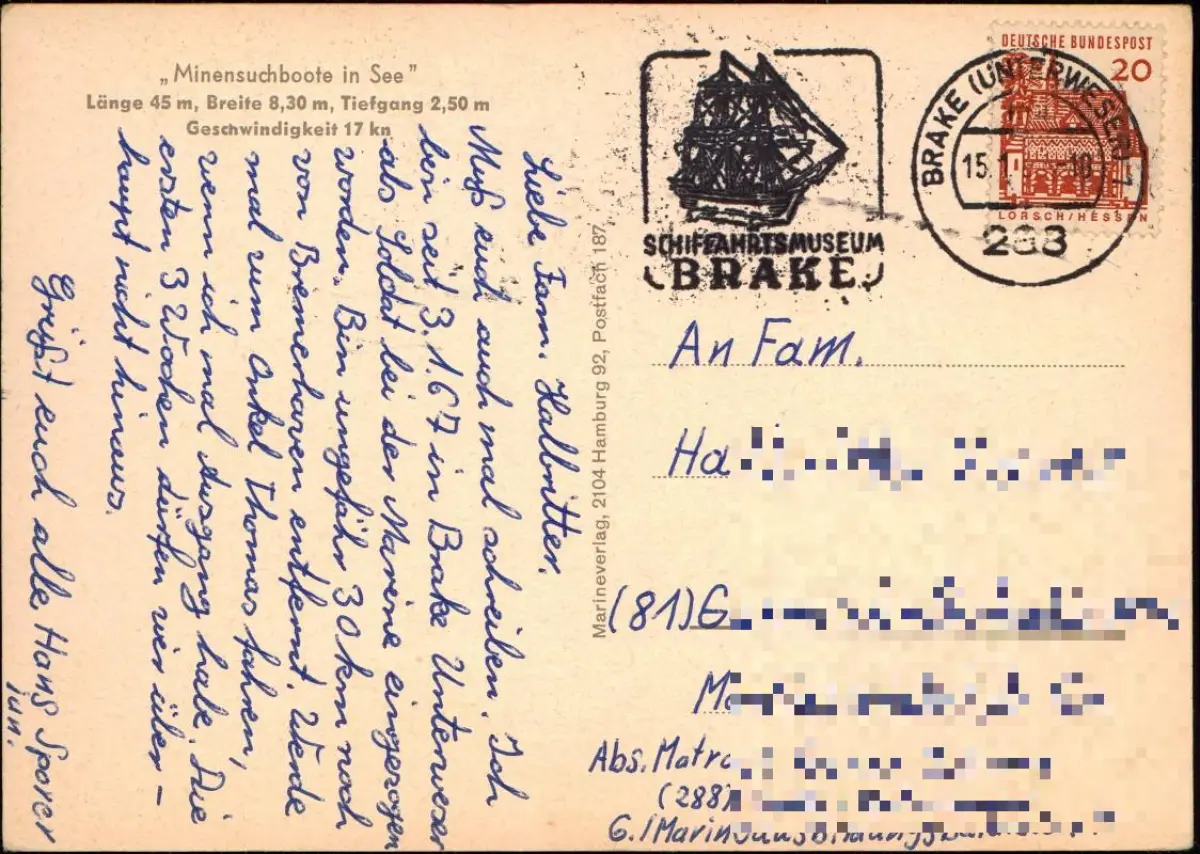 „Minensuchboote in See”
Länge 45 m, Breite 8,30 m, Tiefgang 2,50 m
Geschwindigkeit 17 kn
Liebe Fam. Halbritter.
Muß euch auch mal schreiben. Ich
bin seit 3.1.67 in Brake Unterweser
als Soldat bei der Marine eingezogen
worden. Bin ungefähr 30 km noch
von Bremerhaven entfernt. Werde
mal zum Onkel Thomas fahren,
wenn ich mal Ausgang habe. Die
ersten 3 Wochen dürfen wir über –
haupt nicht hinaus.
Grüßt euch alle Hans Sporer
jun.
Marineverlag, 2104 Hamburg 92, Postfach 187
SCHIFFAHRTSMUSEUM
BRAKE
BRAKE (UNTERWESER) 1
15.1.
288
DEUTSCHE BUNDESPOST
20
LORSCH/HESSEN
An Fam.
Ha
(81) G
M
Abs. Matro
(288)
6./Marineausbildungs